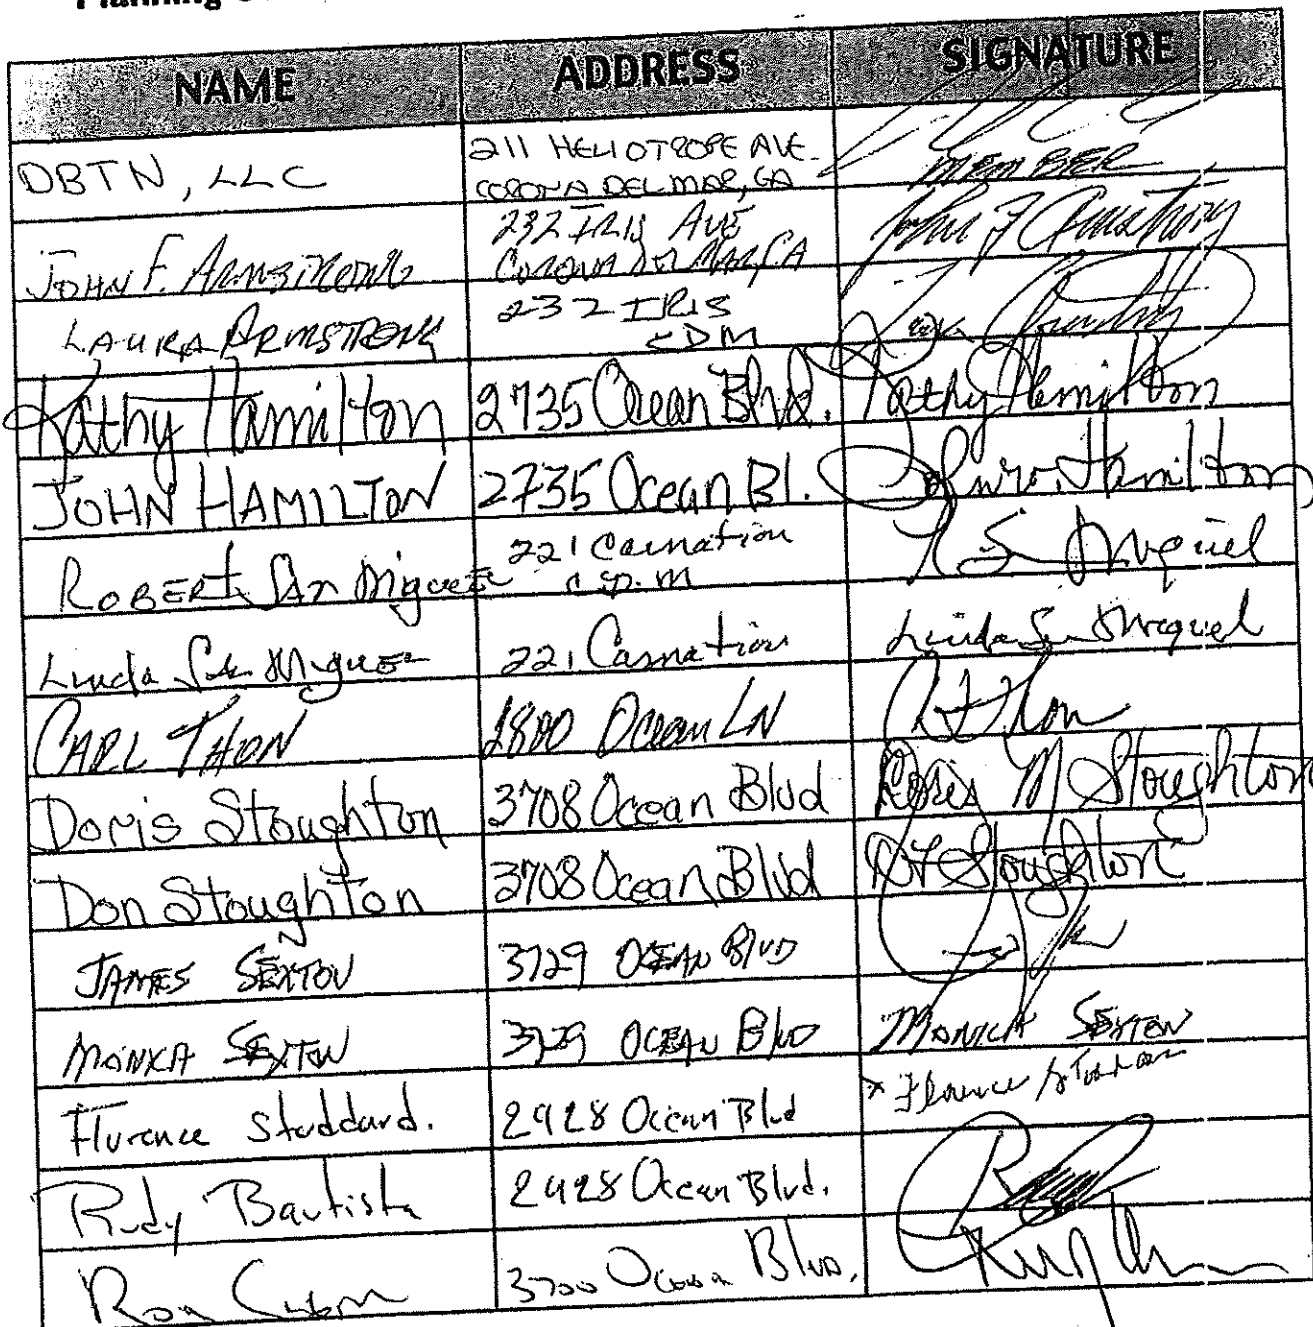 Planning
NAME ADDRESS SIGNATURE
DBTN, LLC 211 HELIOTROPE AVE.
CORONA DEL MAR, CA MEMBER
JOHN F. ARMSTRONG 232 IRIS AVE
CORONA DEL MAR, CA John F Armstrong
LAURA ARMSTRONG 232 IRIS
CDM
Kathy Hamilton 2735 Ocean Blvd. Kathy Hamilton
JOHN HAMILTON 2735 Ocean Bl. Hamilton
ROBERT San Miguel 221 Carnation
C.D.M Miguel
Linda San Miguel 221 Carnation Linda San Miguel
CARL THON 2800 Ocean LN Thon
Doris Stoughton 3708 Ocean Blvd Doris M Stoughton
Don Stoughton 3708 Ocean Blvd Stoughton
JAMES SEXTON 3729 OCEAN BLVD
MONICA SEXTON 3729 OCEAN BLVD MONICA SEXTON
Florence Studdard. 2928 Ocean Blvd Florence
Rudy Bautista 2928 Ocean Blvd.
Ron 3700 Ocean Blvd.